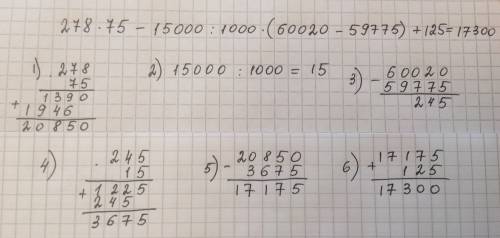 278 · 75 − 15000 : 1000 · (60020 − 59775) + 125 = 17300
1) · 278
75
+ 1390
1946
20850
2) 15000 : 1000 = 15
3) − 60020
59775
245
4) · 245
15
+ 1225
245
3675
5) − 20850
3675
17175
6) + 17175
125
17300